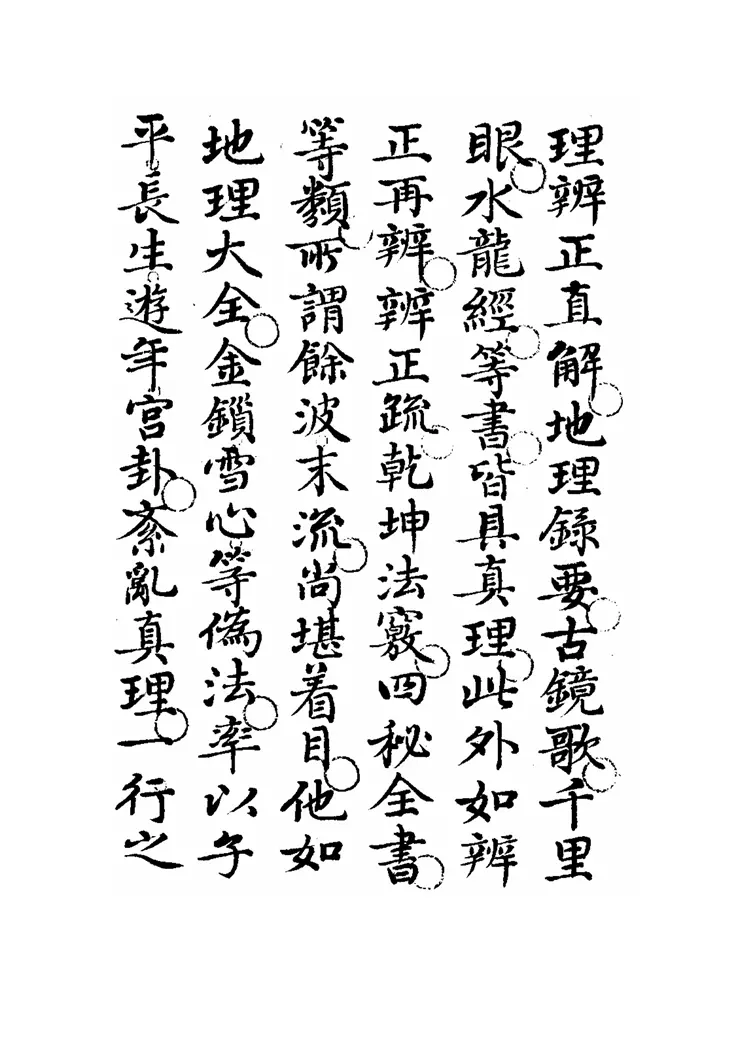 理辨正直解地理録要古鏡歌千里
眼水龍經等書皆具真理此外如辨
正再辨辨正疏乾坤法竅四秘全書
等類所謂餘波末流尚堪着目他如
地理大全金鎖雪心等偽法率以子
平長生遊年宮卦紊亂真理一行之